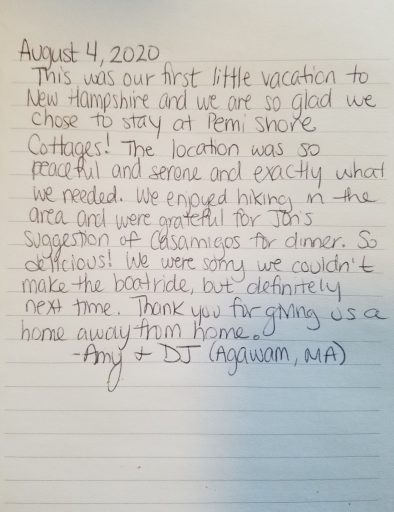 August 4, 2020
This was our first little vacation to
New Hampshire and we are so glad we
chose to stay at Pemi Shore
Cottages! The location was so
peaceful and serene and exactly what
we needed. We enjoyed hiking in the
area and were grateful for Jon's
suggestion of Casamigos for dinner. So
delicious! We were sorry we couldn't
make the boatride, but definitely
next time. Thank you for giving us a
home away from home.
-Amy + DJ (Agawam, MA)